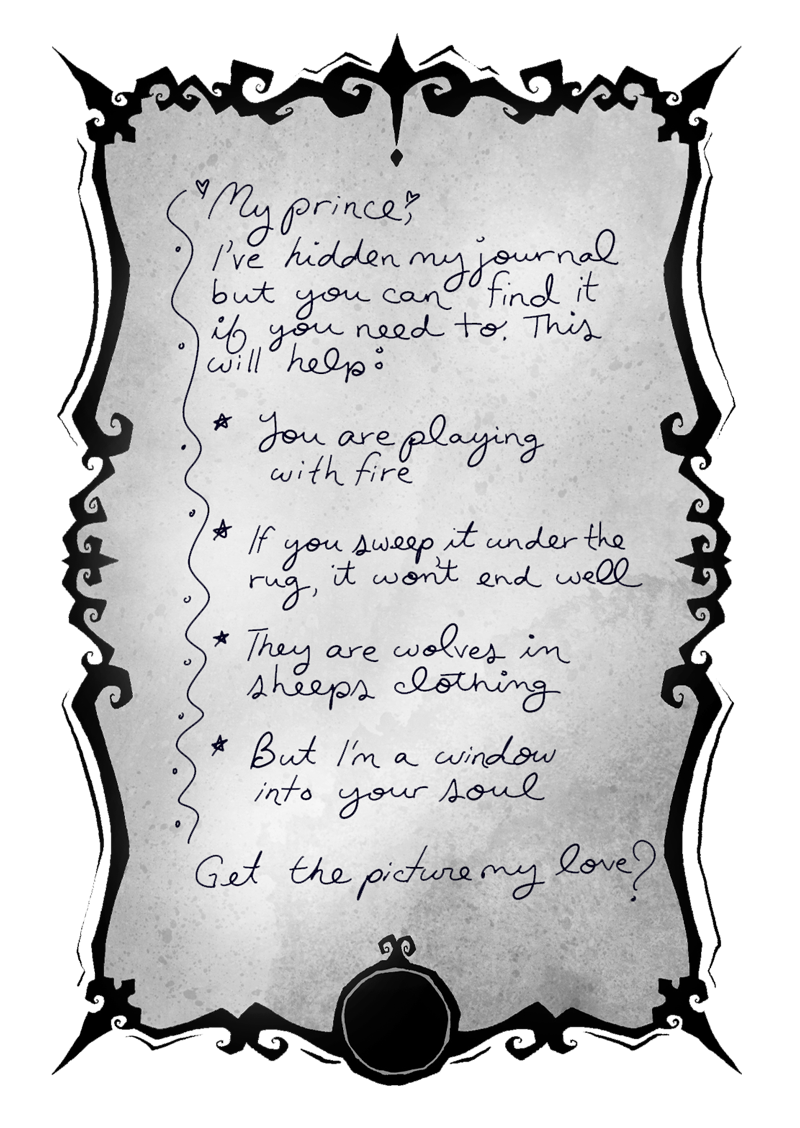 My prince,
I've hidden my journal
but you can find it
if you need to. This
will help:
You are playing
with fire
If you sweep it under the
rug, it won't end well
They are wolves in
sheeps clothing
But I'm a window
into your soul
Get the picture my love?